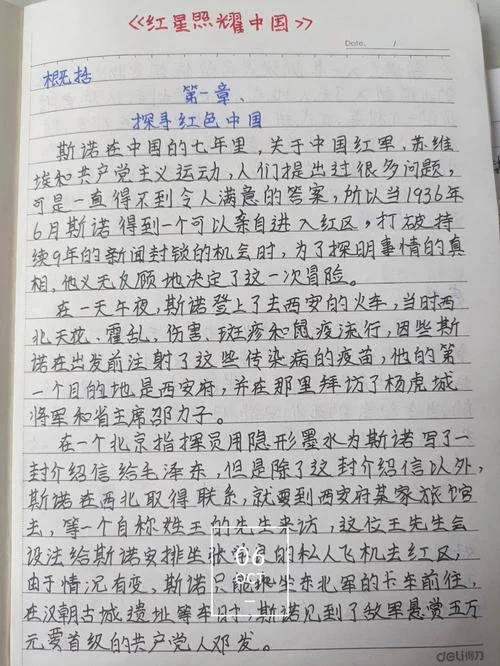 《红星照耀中国》
Date. /
概括
第一章、
探寻红色中国
斯诺在中国的七年里，关于中国红军、苏维
埃和共产党主义运动，人们提出过很多问题，
可是一直得不到令人满意的答案，所以当1936年
6月斯诺得到一个可以亲自进入红区，打破持
续9年的新闻封锁的机会时，为了探明事情的真
相，他义无反顾地决定了这一次冒险。
在一天午夜，斯诺登上了去西安的火车，当时西
北天花、霍乱，伤害、斑疹和鼠疫流行，因些斯
诺在出发前注射了这些传染病的疫苗，他的第
一个目的地是西安府，并在那里拜访了杨虎城
将军和省主席邵力子。
在一个北京指挥员用隐形墨水为斯诺写了一
封介绍信给毛泽东，但是除了这封介绍信以外，
斯诺在西北取得联系，就要到西安府某家旅馆
去，等一个自称姓王的先生来访，这位王先生会
设法给斯诺安排坐张学良的私人飞机去红区，
由于情况有变，斯诺只能坐东北军的卡车前往，
在汉朝古城遗址等车时，斯诺见到了敌军悬赏五万
元要首级的共产党人邓发。
06
OCT
deli得力